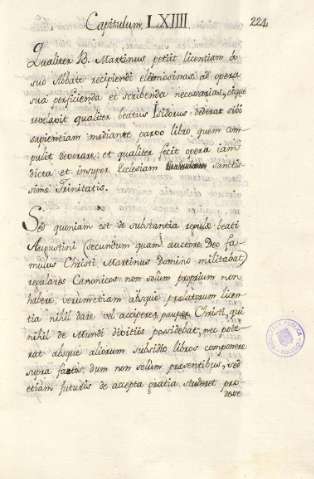 Capitulum LXIIII. 224
Qualiter B. Martinus petit licentiam de
suo Abbate recipiendi elemosinas ad opera
sua perficienda et scribenda necesarias, eique
revelavit qualiter beatus Isidorus dederat sibi
sapientiam mediante parvo libro, quem com
pulit devorare, et qualiter fecit opera iam
dicta et insuper Ecclesiam sanctis
sime Trinitatis.
Sed quoniam est de substantia regulæ beati
Augustini (secundum quam) auctore Deo fa
mulus Christi Martinus Domino militabat,
regulares Canonicos non solum proprium non
habere, verumetiam absque prælatorum licen
tia nihil dare vel accipere, pauper Christi, qui
nihil de Mundi divitiis possidebat, nec pote
rat absque aliorum subsidio libros componere
supra factos, dum non solum præsentibus, sed
etiam futuris de accepta gratia studeret pro
desse